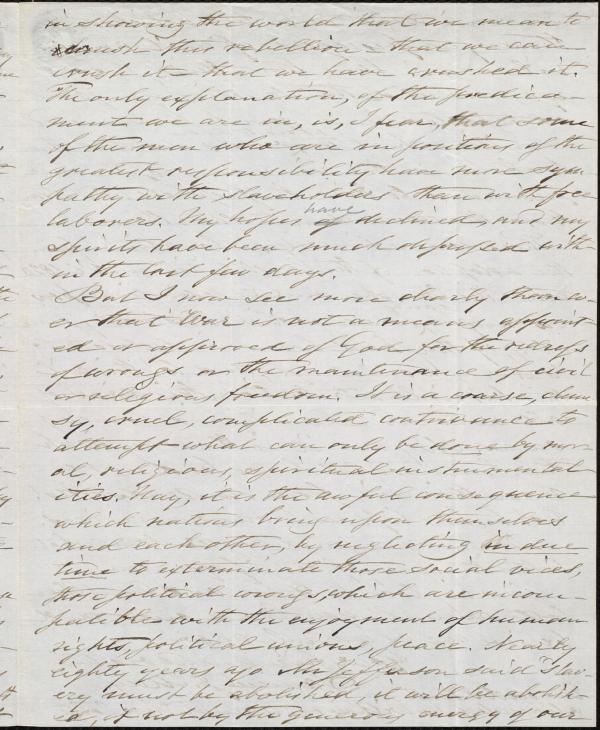 in showing the world that we mean to
crush this rebellion - that we can
crush it - that we have crushed it.
The only explanation, of the predica-
ment we are in, is, I fear, that some
of the men who are in positions of the
greatest responsibility have more sym-
pathy with slaveholders than with free
laborers. My hopes have declined, and my
spirits have been much depressed with-
in the last few days.
But I now see more clearly than ev-
er that War is not a means appoint-
ed or approved of God for the redress
of wrongs or the maintenance of civil
or religious freedom. It is a coarse, clum-
sy, cruel, complicated contrivance to
attempt what can only be done by mor-
al, religious, spiritual instrumental-
ities. Nay, it is the awful consequence
which nations bring upon themselves
and each other, by neglecting in due
time to exterminate those social vices,
those political wrongs, which are incom-
patible with the enjoyment of human
rights, political unions, peace. Nearly
eighty years ago Mr Jefferson said "Slav-
ery must be abolished, it will be abolish-
ed, if not by the generous energy of our